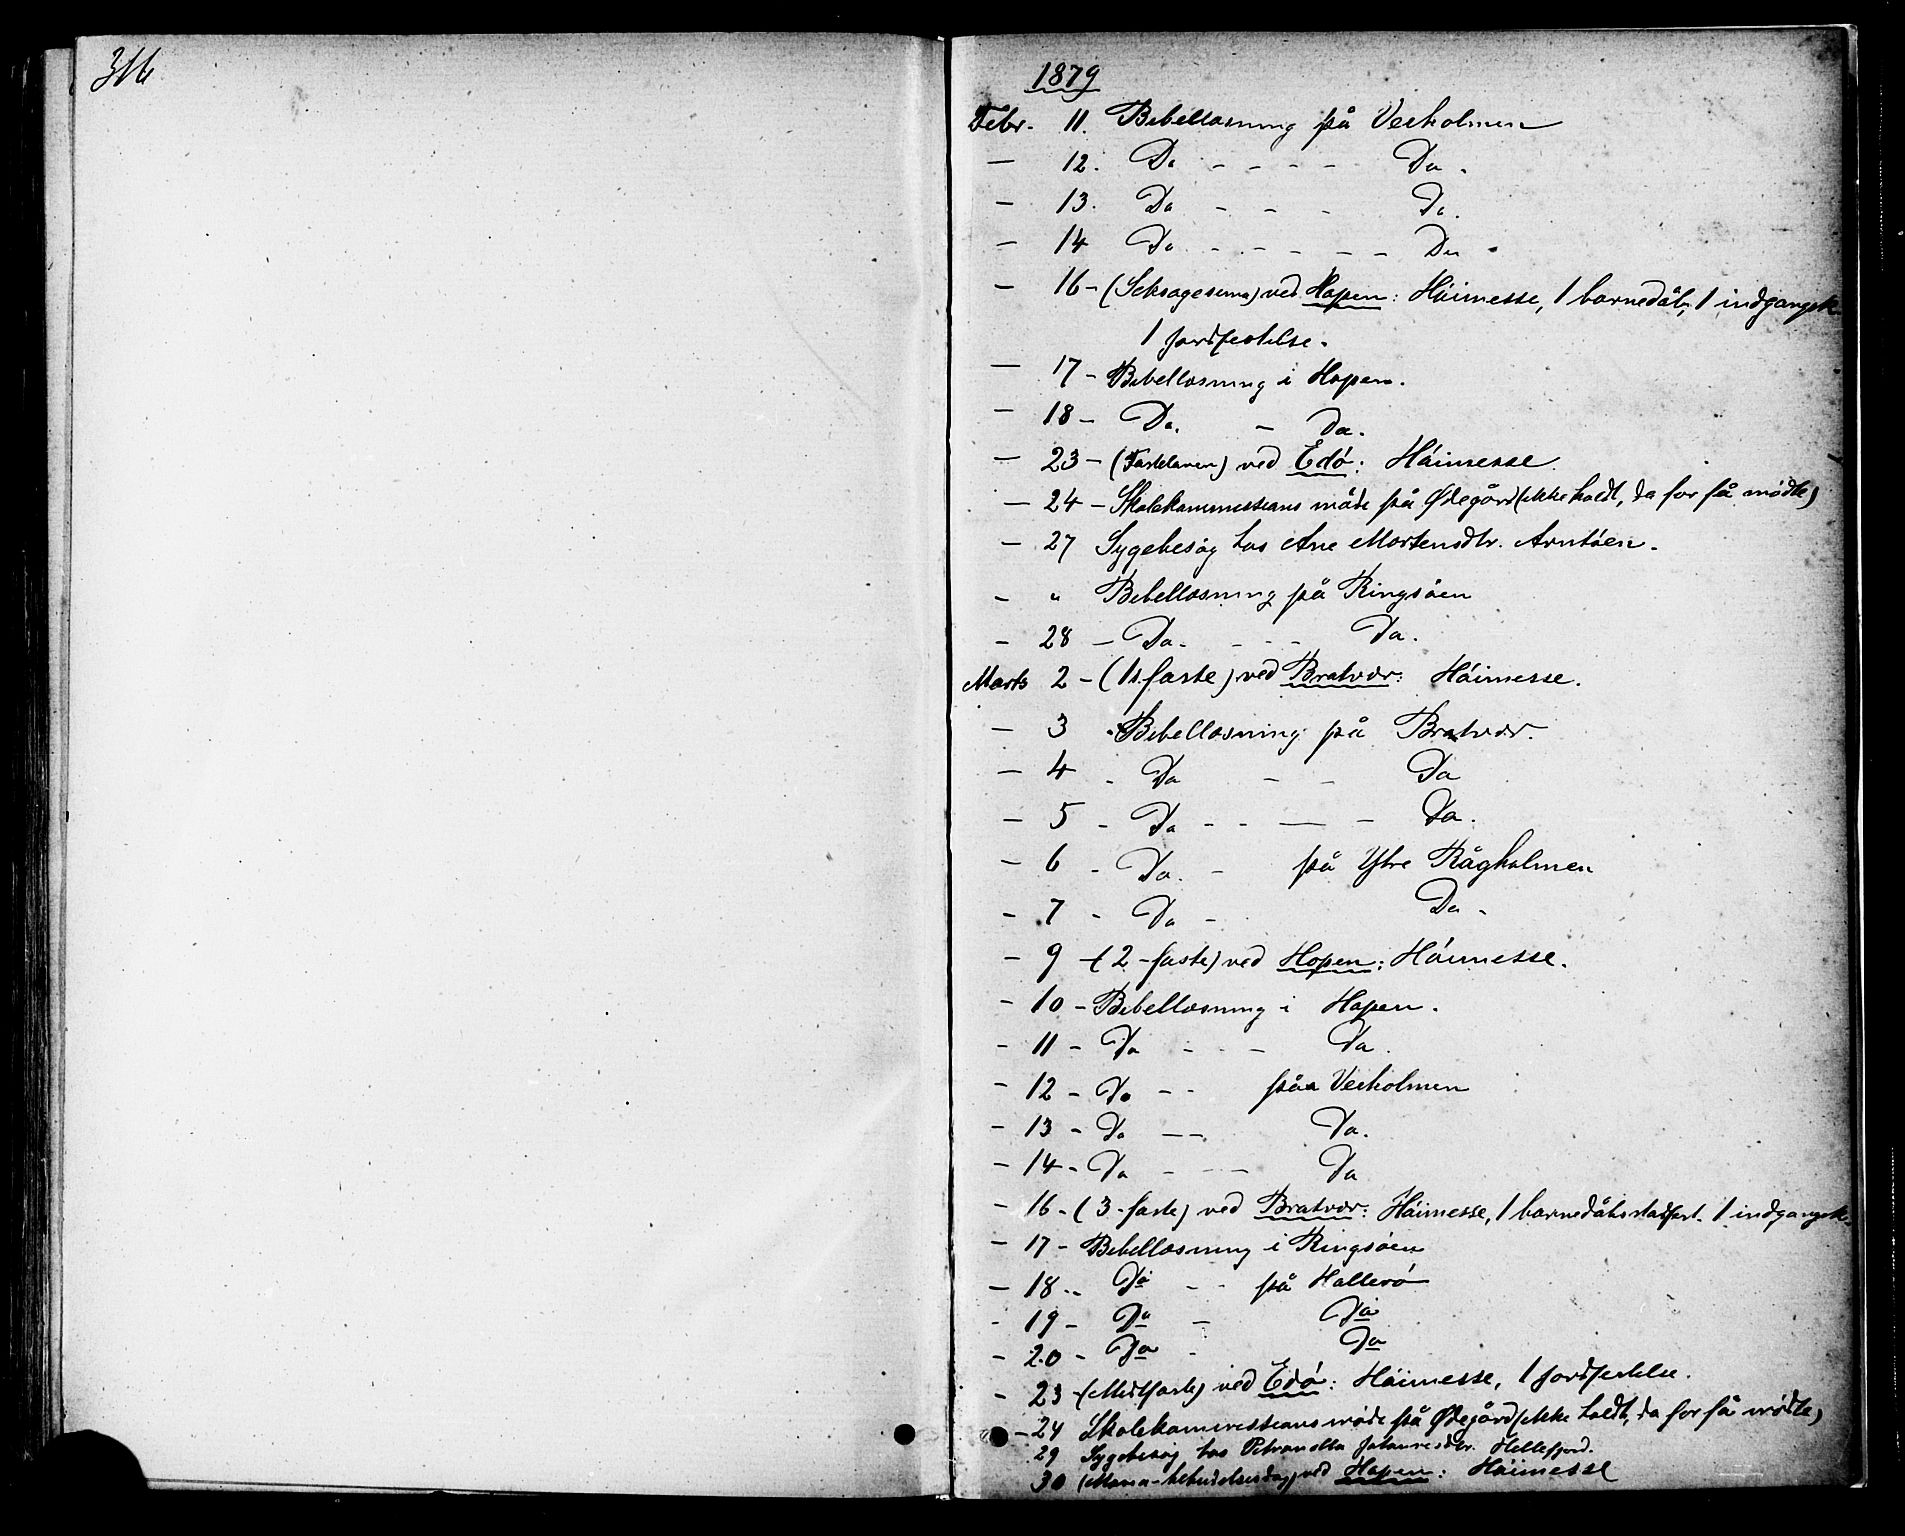 316
1879
Febr. 11. Bibellæsning på Veiholmen
— 12. Do - - - - Do.
— 13. Do - - - Do.
— 14 Do - - - - - Do.
— 16 - (Seksagesima) ved Hopen: Háimesse, 1 barnedåb, 1 indgangsk.
1 jordfestelse.
— 17 - Bibellæsning i Hopen.
— 18 - Do. - Do.
— 23 - (Fastelaven) ved Edó: Háimesse.
— 24 - Skolekommissions móde på Ødegård (ikke holdt, da for få mødte)
— 27 Sygebesóg hos Ane Mortensdtr. Arntóen.
- " Bibellæsning på Ringsóen
- 28 - Do. - - - Do.
Marts 2 - (1s. faste) ved Bratvær: Hóimesse.
— 3 - Bibellæsning på Bratvær.
— 4 - Do - - Do
— 5 - Do - - — - Do.
— 6 - Do. - på Ytre Rågholmen
- 7 - Do - Do -
- 9 - (2 - faste) ved Hopen: Hóimesse.
- 10 - Bibellæsning i Hopen.
- 11 - Do - - - Do.
- 12 - Do - - på Veiholmen
- 13 - Do — - Do.
- 14 - Do - - - Do
- 16 - (3 - faste) ved Bratvær: Háimesse, 1 barnedåbsstadfest. 1 indgangsk.
- 17 - Bibellæsning i Ringsóen
- 18 - Do - - på Halleró
- 19 - Do - Do
- 20 - Do - Do
- 23 - (Midtfaste) ved Edó: Háimesse, 1 jordfestelse.
- 24 Skolekommissions móde på Ødegård (ikke holdt, da for få mødte)
29 Sygebesóg hos Petronella Johannesdtr. Hellefjord.
30 (Maria-bebudelsesdag) ved Hopen: Háimesse